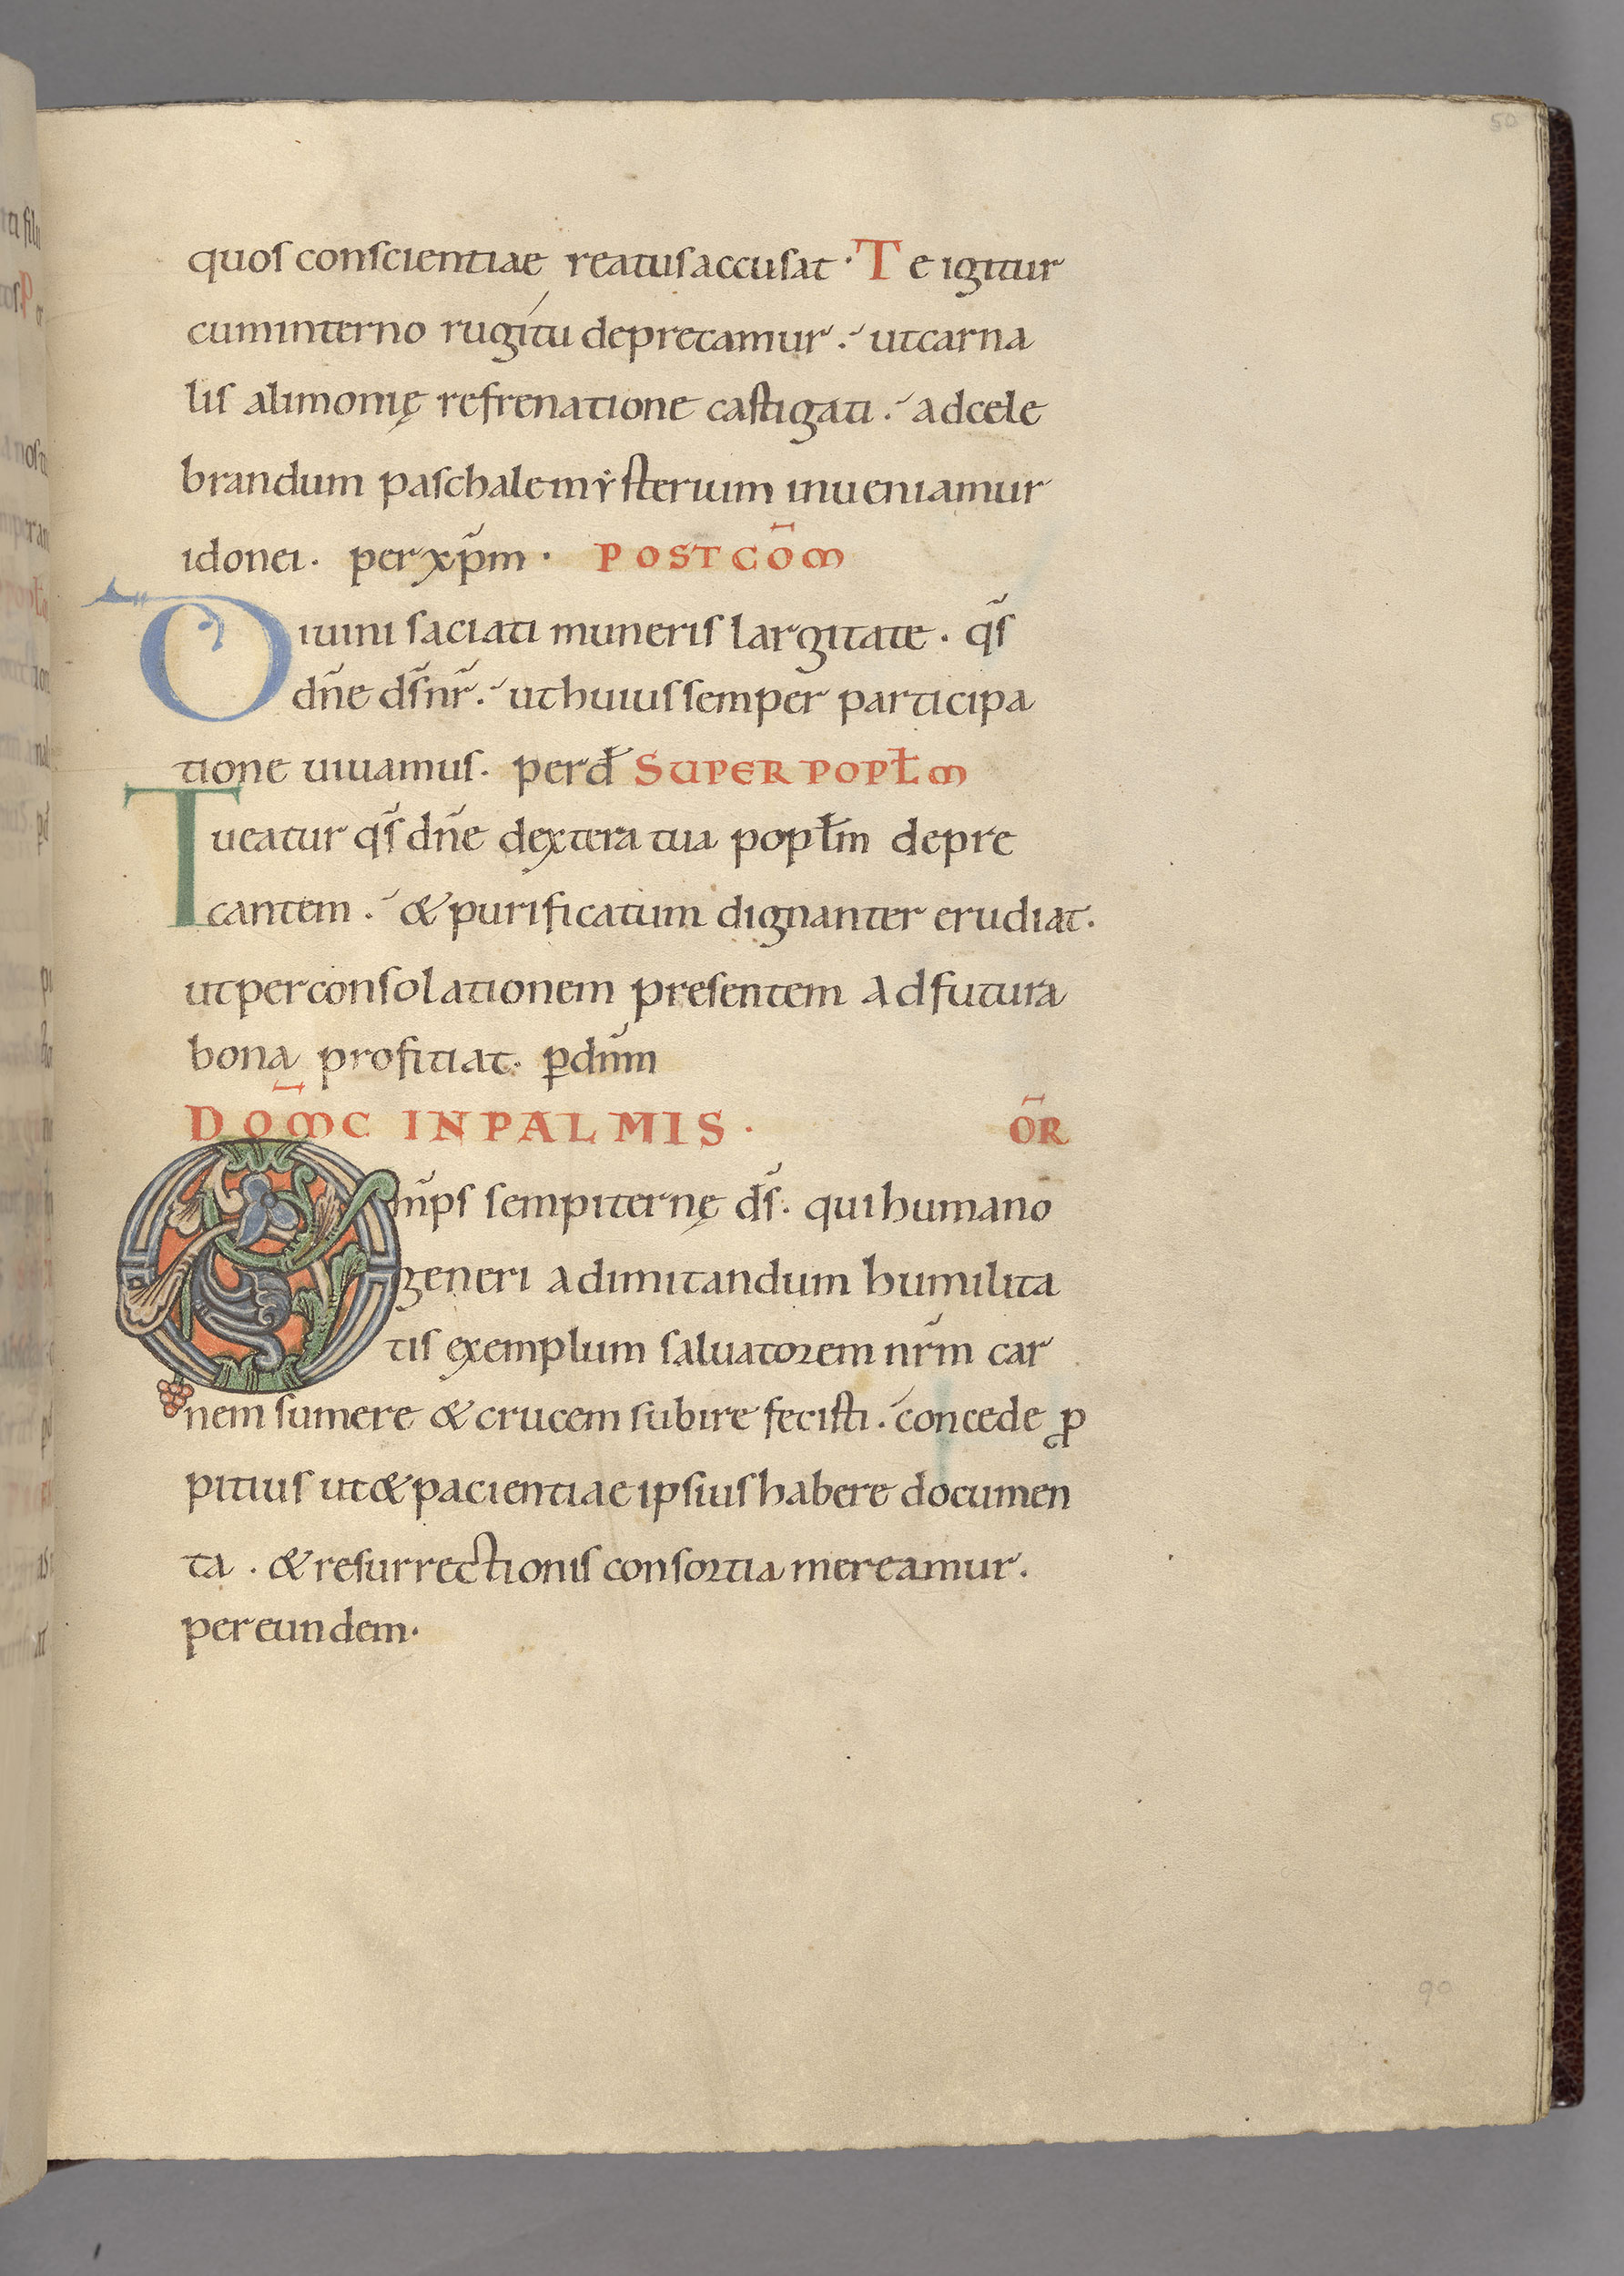 50
quos conscientiae reatus accusat · Te igitur
cum interno rugitu deprecamur . ut carna
lis alimonię refrenatione castigati . ad cele
brandum paschale mysterium inueniamur
idonei . per xp̄m · POST CŌM
Diuini saciati muneris largitate . qs̄
dn̄e ds̄ nr̄ . ut huius semper participa
tione uiuamus . per đ SUPER POPŁM
Tueatur qs̄ dn̄e dextera tua popłm depre
cantem . & purificatum dignanter erudiat .
ut per consolationem presentem ad futura
bona proficiat . ꝑ dnm̄
DOM̄C IN PALMIS · ŌR
Om̄ps sempiternę ds̄ . qui humano
generi ad imitandum humilita
tis exemplum saluatorem nr̄m car
nem sumere & crucem subire fecisti . concede ꝓ
pitius ut & pacientiae ipsius habere documen
ta . & resurrectionis consortia mereamur .
per eundem .
90